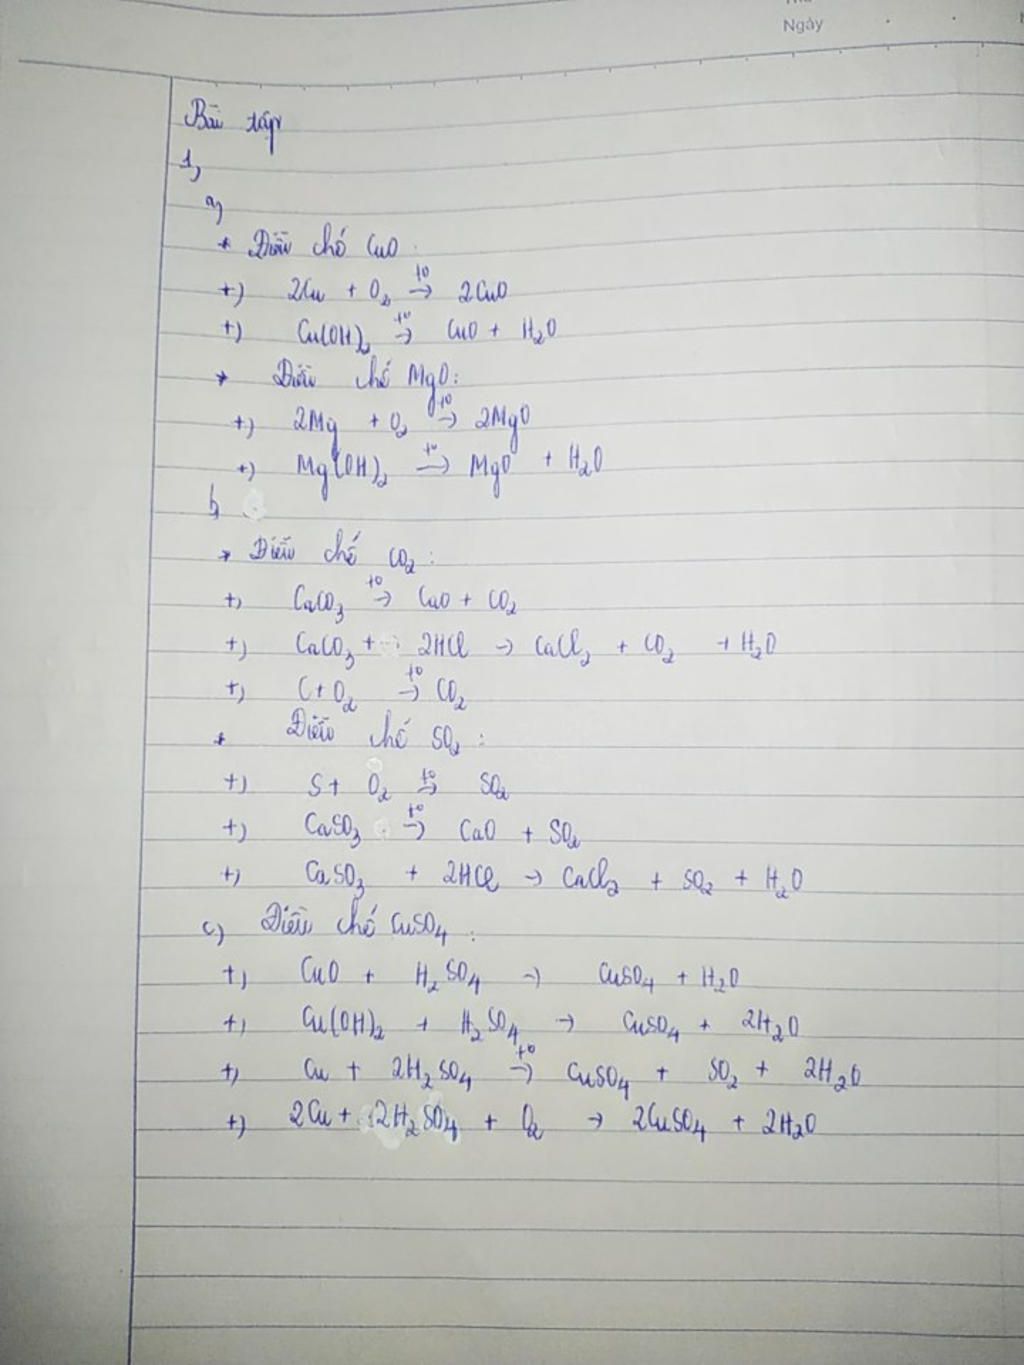 Ngày
Bài tập
1,
a,
* Điều chế CuO :
+) 2Cu + O₂ t⁰→ 2CuO
+) Cu(OH)₂ t⁰→ CuO + H₂O
* Điều chế MgO :
+) 2Mg + O₂ t⁰→ 2MgO
+) Mg(OH)₂ t⁰→ MgO + H₂O
b,
* Điều chế CO₂ :
+) CaCO₃ t⁰→ CaO + CO₂
+) CaCO₃ + 2HCl → CaCl₂ + CO₂ + H₂O
+) C + O₂ t⁰→ CO₂
* Điều chế SO₂ :
+) S + O₂ t⁰→ SO₂
+) CaSO₃ t⁰→ CaO + SO₂
+) CaSO₃ + 2HCl → CaCl₂ + SO₂ + H₂O
c) Điều chế CuSO₄ :
+) CuO + H₂SO₄ → CuSO₄ + H₂O
+) Cu(OH)₂ + H₂SO₄ → CuSO₄ + 2H₂O
+) Cu + 2H₂SO₄ t⁰→ CuSO₄ + SO₂ + 2H₂O
+) 2Cu + 2H₂SO₄ + O₂ → 2CuSO₄ + 2H₂O